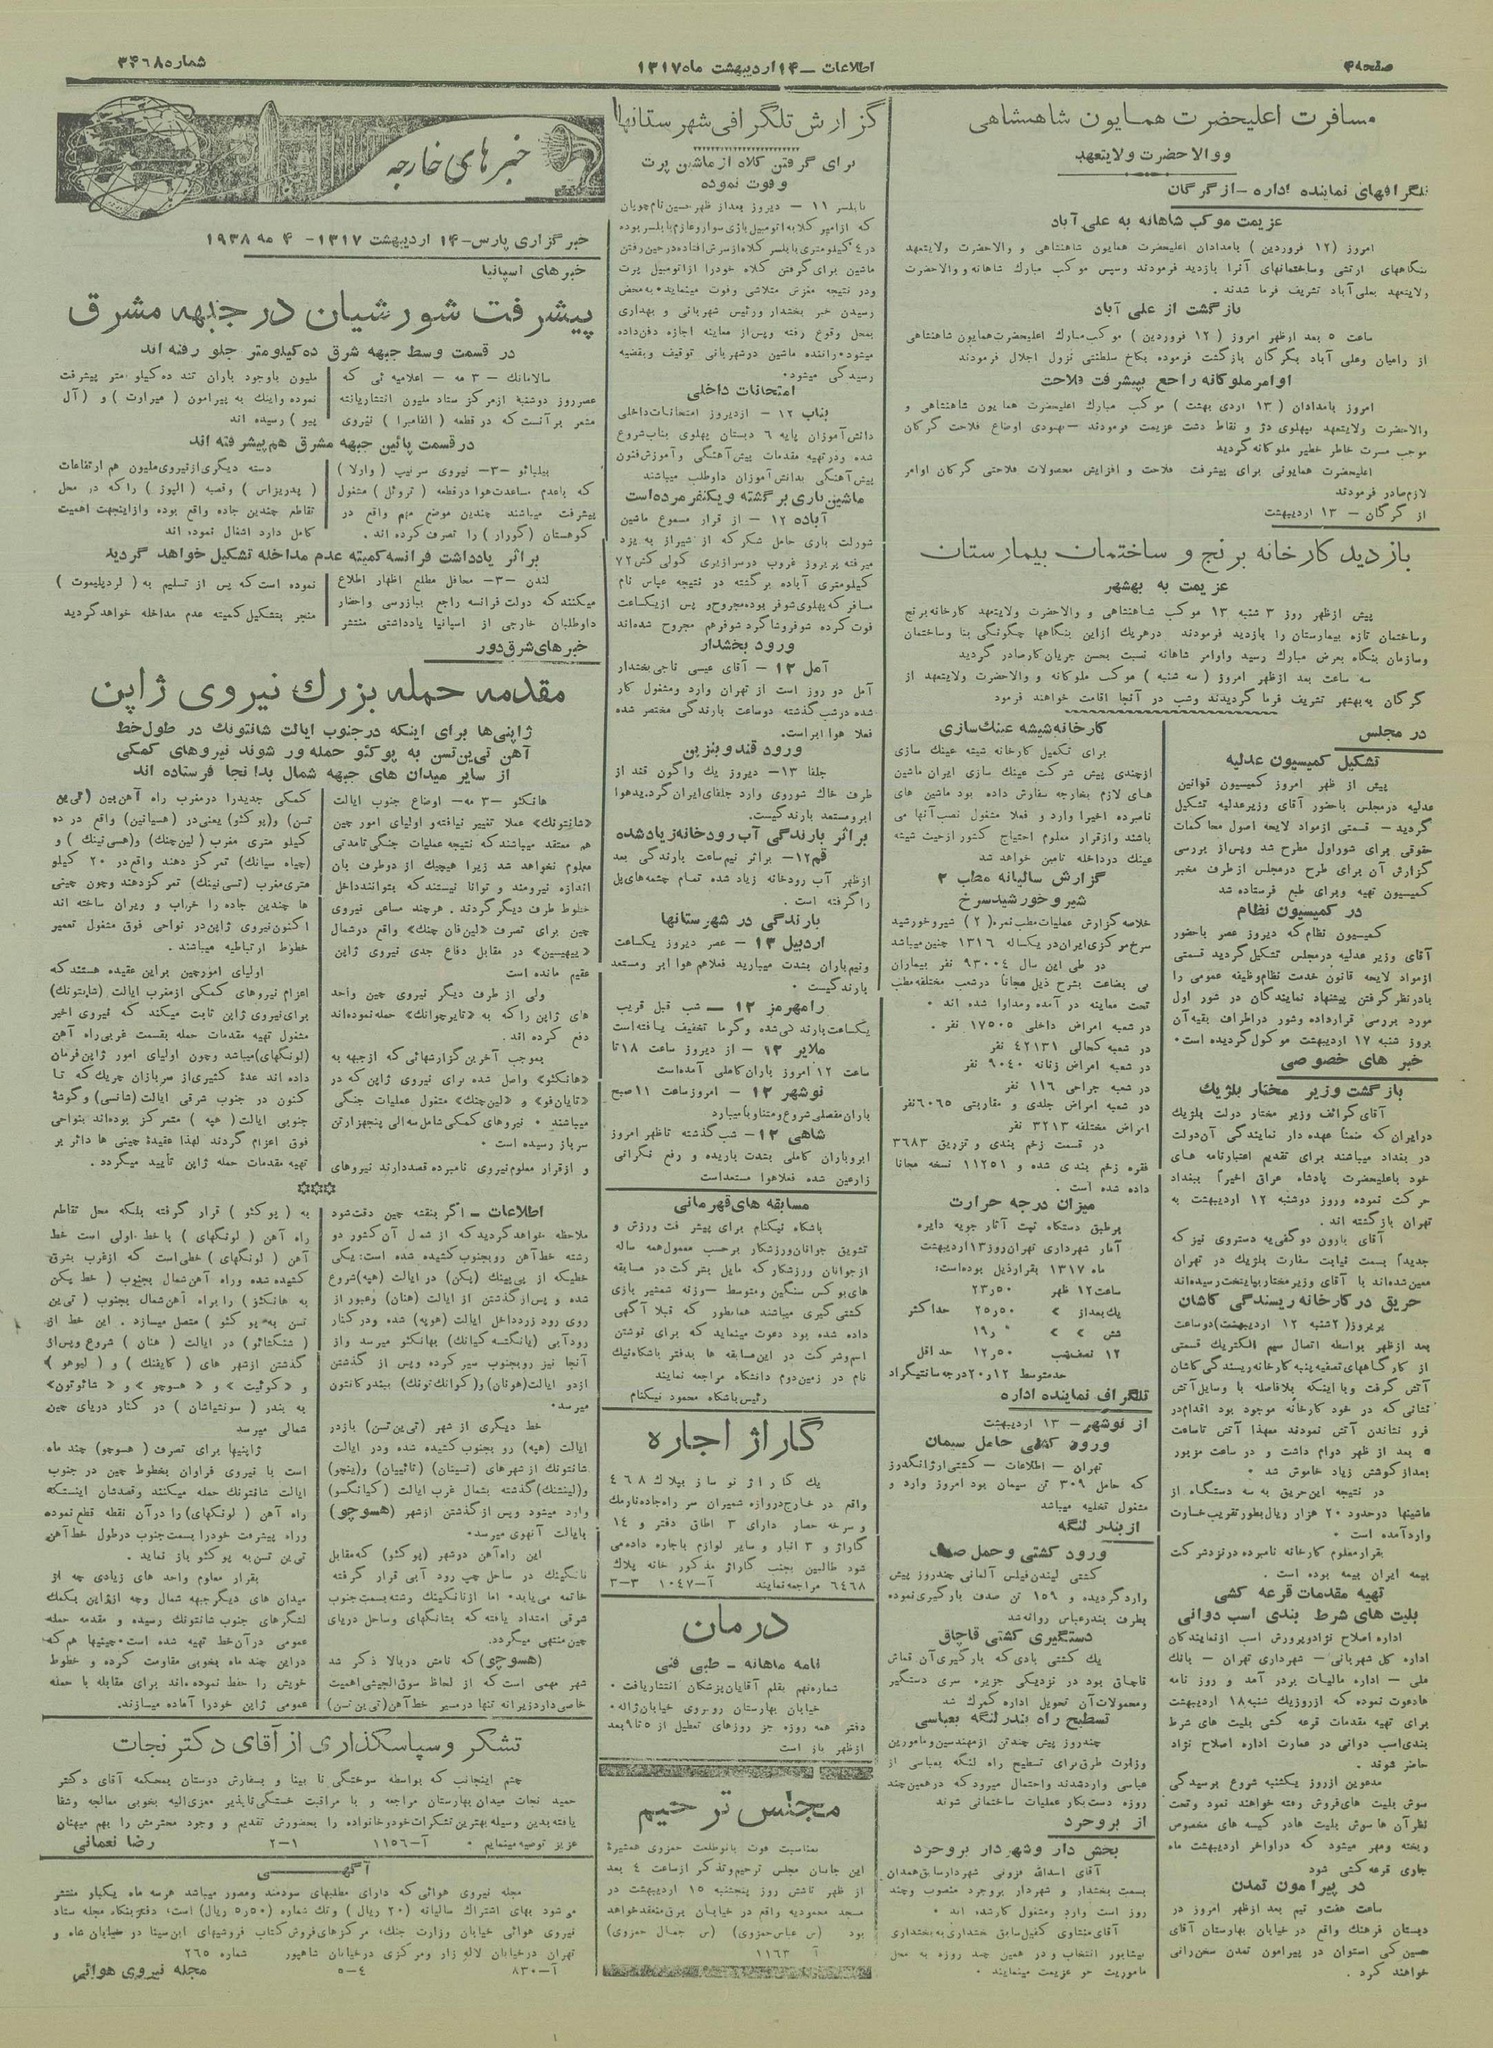 صفحه ۴
اطلاعات – ۱۴ اردیبهشت ماه ۱۳۱۷
شماره ۳۴۶۸
مسافرت اعلیحضرت همایون شاهنشاهی
و والاحضرت ولایتعهد
تلگرافهای نماینده اداره – از گرگان
عزیمت موکب شاهانه به علی آباد
امروز (۱۲ فروردین) بامدادان اعلیحضرت همایون شاهنشاهی و والاحضرت ولایتعهد
بنگاههای ارتشی وساختمانهای آنرا بازدید فرمودند وسپس موکب مبارک شاهانه و والاحضرت
ولایتعهد بعلی آباد تشریف فرما شدند.
بازگشت از علی آباد
ساعت ۵ بعد ازظهر امروز (۱۲ فروردین) موکب مبارک اعلیحضرت همایون شاهنشاهی
از رامیان وعلی آباد بگرگان بازگشت فرموده بکاخ سلطنتی نزول اجلال فرمودند
اوامر ملوکانه راجع بپیشرفت فلاحت
امروز بامدادان (۱۳ اردی بهشت) موکب مبارک اعلیحضرت همایون شاهنشاهی و
والاحضرت ولایتعهد بپهلوی دژ و نقاط دشت عزیمت فرمودند – بهبودی اوضاع فلاحت گرگان
موجب مسرت خاطر خطیر ملوکانه گردید
اعلیحضرت همایونی برای پیشرفت فلاحت و افزایش محصولات فلاحتی گرگان اوامر
لازم صادر فرمودند
از گرگان – ۱۳ اردیبهشت
بازدید کارخانه برنج و ساختمان بیمارستان
عزیمت به بهشهر
پیش ازظهر روز ۳ شنبه ۱۳ موکب شاهنشاهی و والاحضرت ولایتعهد کارخانه برنج
وساختمان تازه بیمارستان را بازدید فرمودند درهریک ازاین بنگاهها چگونگی بنا وساختمان
وسازمان بنگاه بعرض مبارک رسید واوامر شاهانه نسبت بحسن جریان کار صادر گردید
سه ساعت بعد ازظهر امروز (سه شنبه) موکب ملوکانه و والاحضرت ولایتعهد از
گرگان به بهشهر تشریف فرما گردیدند وشب در آنجا اقامت خواهند فرمود
در مجلس
تشکیل کمیسیون عدلیه
پیش از ظهر امروز کمیسیون قوانین
عدلیه درمجلس باحضور آقای وزیر عدلیه تشکیل
گردید – قسمتی ازمواد لایحه اصول محاکمات
حقوقی برای شوراول مطرح شد وپس از بررسی
گزارش آن برای طرح درمجلس ازطرف مخبر
کمیسیون تهیه وبرای طبع فرستاده شد
در کمیسیون نظام
کمیسیون نظام که دیروز عصر باحضور
آقای وزیر عدلیه درمجلس تشکیل گردید قسمتی
ازمواد لایحه قانون خدمت نظام وظیفه عمومی را
بادرنظر گرفتن پیشنهاد نمایندگان در شور اول
مورد بررسی قرارداده وشور دراطراف بقیه آن
بروز شنبه ۱۷ اردیبهشت موکول گردیده است.
خبر های خصوصی
بازگشت وزیر مختار بلژیک
آقای گرائف وزیر مختار دولت بلژیک
درایران که ضمناً عهده دار نمایندگی آن دولت
در بغداد میباشند برای تقدیم اعتبارنامه های
خود باعلیحضرت پادشاه عراق اخیراً ببغداد
حرکت نموده وروز دوشنبه ۱۲ اردیبهشت به
تهران بازگشته اند.
آقای بارون دو گفیه دستروی نیز که
جدیداً بسمت نیابت سفارت بلژیک در تهران
معین شده اند با آقای وزیر مختار بپایتخت رسیده اند
حریق در کارخانه ریسندگی کاشان
پریروز (۲شنبه ۱۲ اردیبهشت) دو ساعت
بعد ازظهر بواسطه اتصال سیم الکتریک قسمتی
از کارگاههای تصفیه پنبه کارخانه ریسندگی کاشان
آتش گرفت وبا اینکه بلافاصله با وسایل آتش
نشانی که در خود کارخانه موجود بود اقدام در
فرو نشاندن آتش نمودند معهذا آتش تاساعت
۵ بعد از ظهر دوام داشت و در ساعت مزبور
بعداز کوشش زیاد خاموش شد.
در نتیجه این حریق به سه دستگاه از
ماشینها درحدود ۲۰ هزار ریال بطور تقریب خسارت
وارد آمده است.
بقرار معلوم کارخانه نامبرده در نزد شرکت
بیمه ایران بیمه بوده است.
تهیه مقدمات قرعه کشی
بلیت های شرط بندی اسب دوانی
اداره اصلاح نژاد وپرورش اسب از نمایندگان
اداره کل شهربانی – شهرداری تهران – بانک
ملی – اداره مالیات بر درآمد و روز نامه
ها دعوت نموده که ازروزیک شنبه ۱۸ اردیبهشت
برای تهیه مقدمات قرعه کشی بلیت های شرط
بندی اسب دوانی در عمارت اداره اصلاح نژاد
حاضر شوند.
مدعوین ازروز یکشنبه شروع برسیدگی
سوش بلیت های فروش رفته خواهند نمود وتحت
نظر آن ها سوش بلیت ها در کیسه های مخصوص
ریخته ومهر میشود که درا واخر اردیبهشت ماه
جاری قرعه کشی شود
در پیرامون تمدن
ساعت هفت و نیم بعد ازظهر امروز در
دبستان فرهنگ واقع در خیابان بهارستان آقای
حسین کی استوان در پیرامون تمدن سخن رانی
خواهند کرد.
کارخانه شیشه عینک سازی
برای تکمیل کارخانه شیشه عینک سازی
ازچندی پیش شرکت عینک سازی ایران ماشین
های لازم بخارجه سفارش داده بود ماشین های
نامبرده اخیراً وارد و فعلا مشغول نصب آنها می
باشند وازقرار معلوم احتیاج کشور ازحیث شیشه
عینک درداخله تامین خواهد شد
گزارش سالیانه مطب ۲
شیر و خورشید سرخ
خلاصه گزارش عملیات مطب نمره (۲) شیر و خورشید
سرخ مرکزی ایران در یکساله ۱۳۱۶ چنین میباشد
در طی این سال ۹۳۰۰۴ نفر بیماران
بی بضاعت بشرح ذیل مجاناً درشعب مختلفه مطب
تحت معاینه در آمده ومداوا شده اند.
در شعبه امراض داخلی ۱۷۵۰۵ نفر.
در شعبه کحالی ۴۲۱۳۱ نفر
در شعبه امراض زنانه ۹۰۴۰ نفر
در شعبه جراحی ۱۱۶ نفر
در شعبه امراض جلدی و مقاربتی ۶۰۶۵نفر
امراض مختلفه ۳۲۱۳ نفر
در قسمت زخم بندی و تزریق ۳۶۸۳
فقره زخم بندی شده و ۱۱۲۵۱ نسخه مجانا
داده شده است.
میزان درجه حرارت
برطبق دستگاه ثبت آثار جویه دایره
آمار شهرداری تهران روز ۱۳ اردیبهشت
ماه ۱۳۱۷ بقرار ذیل بوده است:
ساعت ۱۲ ظهر ۲۳٫۵۰
یک بعداز > ۲۵٫۵۰ حداکثر
شش > > ۱۹٫
۱۲ نصف شب ۱۲٫۵۰ حداقل
حدمتوسط ۱۲ و۲۰درجه سانتیگراد
تلگراف نماینده اداره
از نوشهر – ۱۳ اردیبهشت
ورود کشتی حامل سیمان
تهران – اطلاعات – کشتی ارژانگدرو
که حامل ۳۰۹ تن سیمان بود امروز وارد و
مشغول تخلیه میباشد
از بندر لنگه
ورود کشتی وحمل صدف
کشتی لیندن فیلس آلمانی چند روز پیش
وارد گردیده و ۱۵۹ تن صدف بارگیری نموده
بطرف بندرعباس روانه شد
دستگیری کشتی قاچاق
یک کشتی بادی که بارگیری آن قماش
قاچاق بود در نزدیکی جزیره سری دستگیر
ومحمولات آن تحویل اداره گمرک شد
تسطیح راه بندر لنگه بعباسی
چندروز پیش چند تن ازمهندسین ومامورین
وزارت طرق برای تسطیح راه لنگه بعباسی از
عباسی وارد شدند واحتمال میرود که درهمین چند
روزه دست بکار عملیات ساختمانی شوند
از بروجرد
بخش دار و شهر دار بروجرد
آقای اسدالله شهردار سابق همدان
بسمت بخشدار و شهردار بروجرد منصوب وچند
روز است وارد ومشغول کار شده اند.
آقای مشتاوی کفیل سابق بخشداری به بخشداری
نیشابور انتخاب و در همین چند روزه به محل
ماموریت خود عزیمت مینمایند.
گزارش تلگرافی شهرستانها
برای گرفتن کلاه از ماشین پرت
و فوت نموده
بابلسر ۱۱ – دیروز بعداز ظهر حسین نام چوپان
که ازامیرکلا به اتومبیل باری سوار وعازم بابلسر بوده
در ۴ کیلومتری بابلسر کلاه از سرش افتاده درحین رفتن
ماشین برای گرفتن کلاه خودرا ازاتومبیل پرت
ودر نتیجه مغزش متلاشی وفوت مینماید. به محض
رسیدن خبر بخشدار ورئیس شهربانی و بهداری
بمحل وقوع رفته وپس از معاینه اجازه دفن داده
میشود. راننده ماشین در شهربانی توقیف وبقضیه
رسیدگی میشود.
امتحانات داخلی
بناب ۱۲ – ازدیروز امتحانات داخلی
دانش آموزان پایه ۶ دبستان پهلوی بناب شروع
شده ودر تهیه مقدمات پیش آهنگی و آموزش فنون
پیش آهنگی بدانش آموزان داوطلب میباشند
ماشین باری برگشته و یکنفر مرده است
آباده ۱۲ – از قرار مسموع ماشین
شورلت باری حامل شکر که از شیراز به یزد
میرفته پریروز غروب درسرازیری کولی کش ۷۲
کیلومتری آباده برگشته در نتیجه عباس نام
مسافر که پهلوی شوفر بوده مجروح و پس ازیکساعت
فوت کرده شوفر و شاگرد شوفر هم مجروح شده اند
ورود بخشدار
آمل ۱۲ – آقای عیسی تاجی بخشدار
آمل دو روز است از تهران وارد ومشغول کار
شده درشب گذشته دوساعت بارندگی مختصر شده
فعلا هوا ابر است.
ورود قند و بنزین
جلفا ۱۳– دیروز یک واگون قند از
طرف خاک شوروی وارد جلفای ایران گردید هوا
ابر ومستعد بارندگیست.
بر اثر بارندگی آب رودخانه زیاد شده
قم ۱۲– براثر نیم ساعت بارندگی بعد
ازظهر آب رودخانه زیاد شده تمام چشمه های پل
را گرفته است.
بارندگی در شهرستانها
اردبیل ۱۳ – عصر دیروز یکساعت
ونیم باران بشدت میبارید فعلا هم هوا ابر ومستعد
بارندگیست.
رامهرمز ۱۲ – شب قبل قریب
یکساعت بارندگی شده وگرما تخفیف یافته است
ملایر ۱۲ – از دیروز ساعت ۱۸ تا
ساعت ۱۲ امروز باران کاملی آمده است
نوشهر ۱۲ – امروز ساعت ۱۱ صبح
باران مفصلی شروع و متناوباً میبارد
شاهی ۱۲ – شب گذشته تا ظهر امروز
ابر وباران کاملی بشدت باریده و رفع نگرانی
زارعین شده فعلا هوا مستعد است
مسابقه های قهرمانی
باشگاه نیکنام برای پیشر فت ورزش و
تشویق جوانان ورزشکار برحسب معمول همه ساله
ازجوانان ورزشکار که مایل بشرکت در مسابقه
های بوکس سنگین ومتوسط – وزنه شمشیر بازی
کشتی گیری میباشند همانطور که قبلا آگهی
داده شده بود دعوت مینماید که برای نوشتن
اسم وشرکت در این مسابقه ها بدفتر باشگاه نیک
نام در زمین دوم دانشگاه مراجعه نمایند
رئیس باشگاه محمود نیکنام
گاراژ اجاره
یک گاراژ نو ساز بپلاک ۴۶۸
واقع در خارج دروازه شمیران سر راه جاده نارمک
و سرخه حصار دارای ۳ اطاق دفتر و ۱۴
گاراژ و ۳ انبار و سایر لوازم باجاره داده می
شود طالبین بجنب گاراژ مذکور خانه پلاک
۶۴۶۸ مراجعه نمایند آ–۱۰۴۷ ۳–۳
درمان
نامه ماهانه – طبی فنی
شماره نهم بقلم آقایان پزشکان انتشار یافت.
خیابان بهارستان روبروی خیابان ژاله.
دفتر همه روزه جز روزهای تعطیل از ۵ تا ۹ بعد
ازظهر باز است
مجلس ترحیم
بمناسبت فوت بانو طلعت حمزوی همشیره
این جانبان مجلس ترحیم وتذکر ازساعت ۴ بعد
از ظهر تاشش روز پنجشنبه ۱۵ اردیبهشت در
مسجد محمودیه واقع در خیابان برق منعقد خواهد
بود (س عباس حمزوی) (س جمال حمزوی)
آ ۱۱۶۳
خبرهای خارجه
خبرگزاری پارس – ۱۴ اردیبهشت ۱۳۱۷ – ۴ مه ۱۹۳۸
خبرهای اسپانیا
پیشرفت شورشیان در جبهه مشرق
در قسمت وسط جبهه شرق ده کیلومتر جلو رفته اند
سالامانک – ۳ مه – اعلامیه ئی که
عصرروز دوشنبه ازمرکز ستاد ملیون انتشاریافته
مشعر برآنست که در قطعه (الفامبرا) نیروی
ملیون باوجود باران تند ده کیلو متر پیشرفت
نموده واینک به پیرامون (میراوت) و (آل
پیو) رسیده اند
در قسمت پائین جبهه مشرق هم پیشرفته اند
بیلبائو –۳– نیروی سرتیپ (وارلا)
که باعدم مساعدت هوا درقطعه (تروئل) مشغول
پیشرفت میباشند چندین موضع مهم واقع در
کوهستان (گودار) را تصرف کرده اند.
دسته دیگری ازنیروی ملیون هم ارتفاعات
(پدریزاس) وقصبه (الپوز) را که در محل
تقاطع چندین جاده واقع بوده وازاینجهت اهمیت
کامل دارد اشغال نموده اند
براثر یادداشت فرانسه کمیته عدم مداخله تشکیل خواهد گردید
لندن –۳– محافل مطلع اظهار اطلاع
میکنند که دولت فرانسه راجع ببازرسی واحضار
داوطلبان خارجی از اسپانیا یادداشتی منتشر
نموده است که پس از تسلیم به (لرد پلیموت)
منجر بتشکیل کمیته عدم مداخله خواهد گردید
خبرهای شرق دور
مقدمه حمله بزرک نیروی ژاپن
ژاپنی ها برای اینکه درجنوب ایالت شانتونک در طول خط
آهن تی ین تسن به پوکئو حمله ور شوند نیروهای کمکی
از سایر میدان های جبهه شمال بدانجا فرستاده اند
هانکئو –۳ مه– اوضاع جنوب ایالت
«شانتونک» عملا تغییر نیافته و اولیای امور چین
هم معتقد میباشند که نتیجه عملیات جنگی تا مدتی
معلوم نخواهد شد زیرا هیچیک از دوطرف بان
اندازه نیرومند و توانا نیستند که بتوانند داخل
خطوط طرف دیگر گردند. هرچند مساعی نیروی
چین برای تصرف «لین فان چنک» واقع درشمال
«ییهسین» در مقابل دفاع جدی نیروی ژاپن
عقیم مانده است
ولی از طرف دیگر نیروی چین واحد
های ژاپن را که به «تایرچوانک» حمله نموده اند
دفع کرده اند.
بموجب آخرین گزارشهائی که ازجبهه به
«هانکئو» واصل شده برای نیروی ژاپن که در
«تایان فو» و «لین چنک» مشغول عملیات جنگی
میباشند. نیروهای کمکی شامل سه الی پنجهزار تن
سرباز رسیده است.
و ازقرار معلوم نیروی نامبرده قصد دارند نیروهای
کمکی جدیدرا درمغرب راه آهن بین (تی ین
تسن) و (پوکئو) یعنی در (هسیانین) واقع در ده
کیلو متری مغرب (لین چنک) و (هسی نینک) و
(چیاه سیانک) تمرکز دهند واقع در ۲۰ کیلو
متری مغرب (تسی نینک) تمرکز دهند وچون چینی
ها چندین جاده را خراب و ویران ساخته اند
اکنون نیروی ژاپن در نواحی فوق مشغول تعمیر
خطوط ارتباطیه میباشند.
اولیای امور چین براین عقیده هستند که
اعزام نیروهای کمکی ازمغرب ایالت (شانتونک)
برای نیروی ژاپن ثابت میکند که نیروی اخیر
مشغول تهیه مقدمات حمله بقسمت غربی راه آهن
(لونگهای) میباشد وچون اولیای امور ژاپن فرمان
داده اند عدهٔ کثیری از سربازان چریک که تا
کنون در جنوب شرقی ایالت (شانسی) وگوشهٔ
جنوبی ایالت (هپه) متمرکز بوده اند بنواحی
فوق اعزام گردند لهذا عقیدهٔ چینی ها دائر بر
تهیه مقدمات حمله ژاپن تأیید میگردد.
***
اطلاعات – اگر بنقشه چین دقت شود
ملاحظه خواهد گردید که از شمال آن کشور دو
رشته خط آهن رو بجنوب کشیده شده است: یکی
خطیکه از پی پینک (پکن) در ایالت (هپه) شروع
شده و پس از گذشتن از ایالت (هنان) وعبور از
روی رود زرد داخل ایالت (هوپه) شده ودر کنار
رود آبی (یانگتسه کیانک) بهانکئو میرسد واز
آنجا نیز رو بجنوب سیر کرده وپس از گذشتن
ازدو ایالت (هونان) و (کوانک تونک) ببندر کانتون
میرسد.
خط دیگری از شهر (تی ین تسن) بازدر
ایالت (هپه) رو بجنوب کشیده شده ودر ایالت
شانتونک از شهرهای (تسینان) (تائییان) و (ینچو)
و (لینشنک) گذشته بشمال غرب ایالت (کیانکسو)
وارد میشود وپس از گذشتن ازشهر (هسوچو)
بایالت آنهوی میرسد.
این راه آهن درشهر (پوکئو) که مقابل
نانکینک در ساحل چپ رود آبی قرار گرفته
خاتمه می یابد. اما ازنانکینک رشته بسمت جنوب
شرقی امتداد یافته که بشانگهای وساحل دریای
چین منتهی میگردد.
(هسوچو) که نامش دربالا ذکر شد
شهر مهمی است که از لحاظ سوق الجیشی اهمیت
خاصی دارد زیرا نه تنها درمسیر خط آهن (تی ین تسن)
به (پوکئو) قرار گرفته بلکه محل تقاطع
راه آهن (لونگهای) با خط اولی است خط
آهن (لونگهای) خطی است که ازغرب بشرق
کشیده شده وراه آهن شمال بجنوب (خط پکن
به هانکئو) را براه آهن شمال بجنوب (تی ین
تسن به پوکئو) متصل میسازد. این خط از
(شنگشائو) در ایالت (هنان) شروع وپس از
گذشتن ازشهر های (کایفنک) و (لیوهو)
و «کوئیت» و « هسوچو» و « شائوتون»
به بندر (سونتیاشان) در کنار دریای چین
شمالی میرسد
ژاپنیها برای تصرف (هسوچو) چند ماه
است با نیروی فراوان بخطوط چین در جنوب
ایالت شانتونک حمله میکنند وقصدشان اینستکه
راه آهن (لونگهای) را درآن نقطه قطع نموده
وراه پیشرفت خودرا بسمت جنوب درطول خط آهن
تی ین تسن به پوکئو باز نماید.
بقرار معلوم واحد های زیادی چه از
میدان های دیگر جبهه شمال وچه ازژاپن بکمک
لشگرهای جنوب شانتونک رسیده و مقدمه حمله
عمومی درآن خط تهیه شده است. چینیها هم که
دراین چند ماه بخوبی مقاومت کرده و خطوط
خویش را حفظ نموده اند برای مقابله با حمله
عمومی ژاپن خودرا آماده میسازند.
تشکر وسپاسگذاری از آقای دکتر نجات
چشم اینجانب که بواسطه سوختگی نا بینا و بسفارش دوستان بمحکمه آقای دکتر
حمید نجات میدان بهارستان مراجعه و با مراقبت خستگی ناپذیر معزی الیه بخوبی معالجه وشفا
یافته بدین وسیله بهترین تشکرات خود و خانواده را بحضورش تقدیم و وجود محترمش را بهم میهنان
عزیز توصیه مینمایم. آ–۱۱۵۶ ۲–۱ رضا نعمانی
آگهی
مجله نیروی هوائی که دارای مطلبهای سودمند ومصور میباشد هرسه ماه یکبار منتشر
می شود بهای اشتراک سالیانه (۲۰ ریال) وتک شماره (۵٫۵۰ ریال) است؛ دفتر بنگاه مجله ستاد
نیروی هوائی خیابان وزارت جنک، مرکزهای فروش کتاب فروشیهای ابن سینا در خیابان شاه و
تهران درخیابان لاله زار ومرکزی درخیابان شاهپور شماره ۲۶۵
آ–۸۳۰ ۵–۴ مجله نیروی هوائی